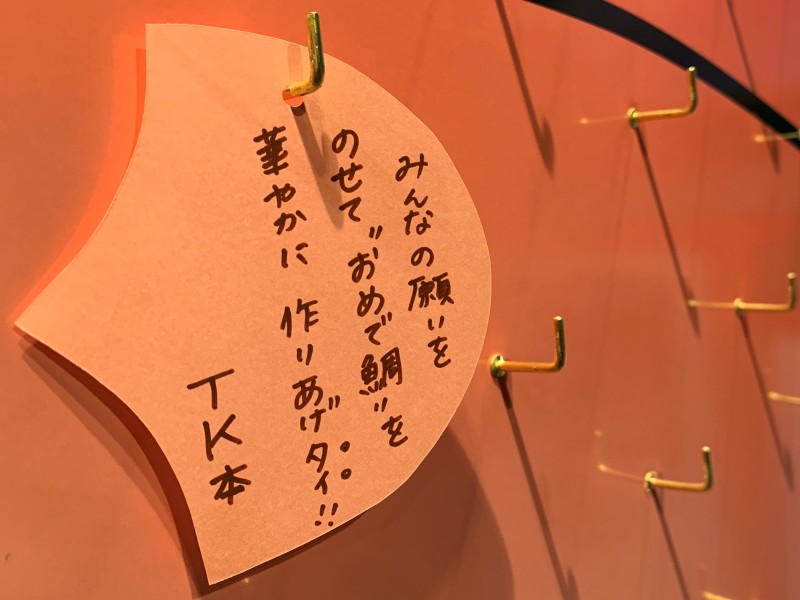 みんなの願いを
のせて〃おめで鯛〃を
華やかに 作りあげタイ。。!!
TK本